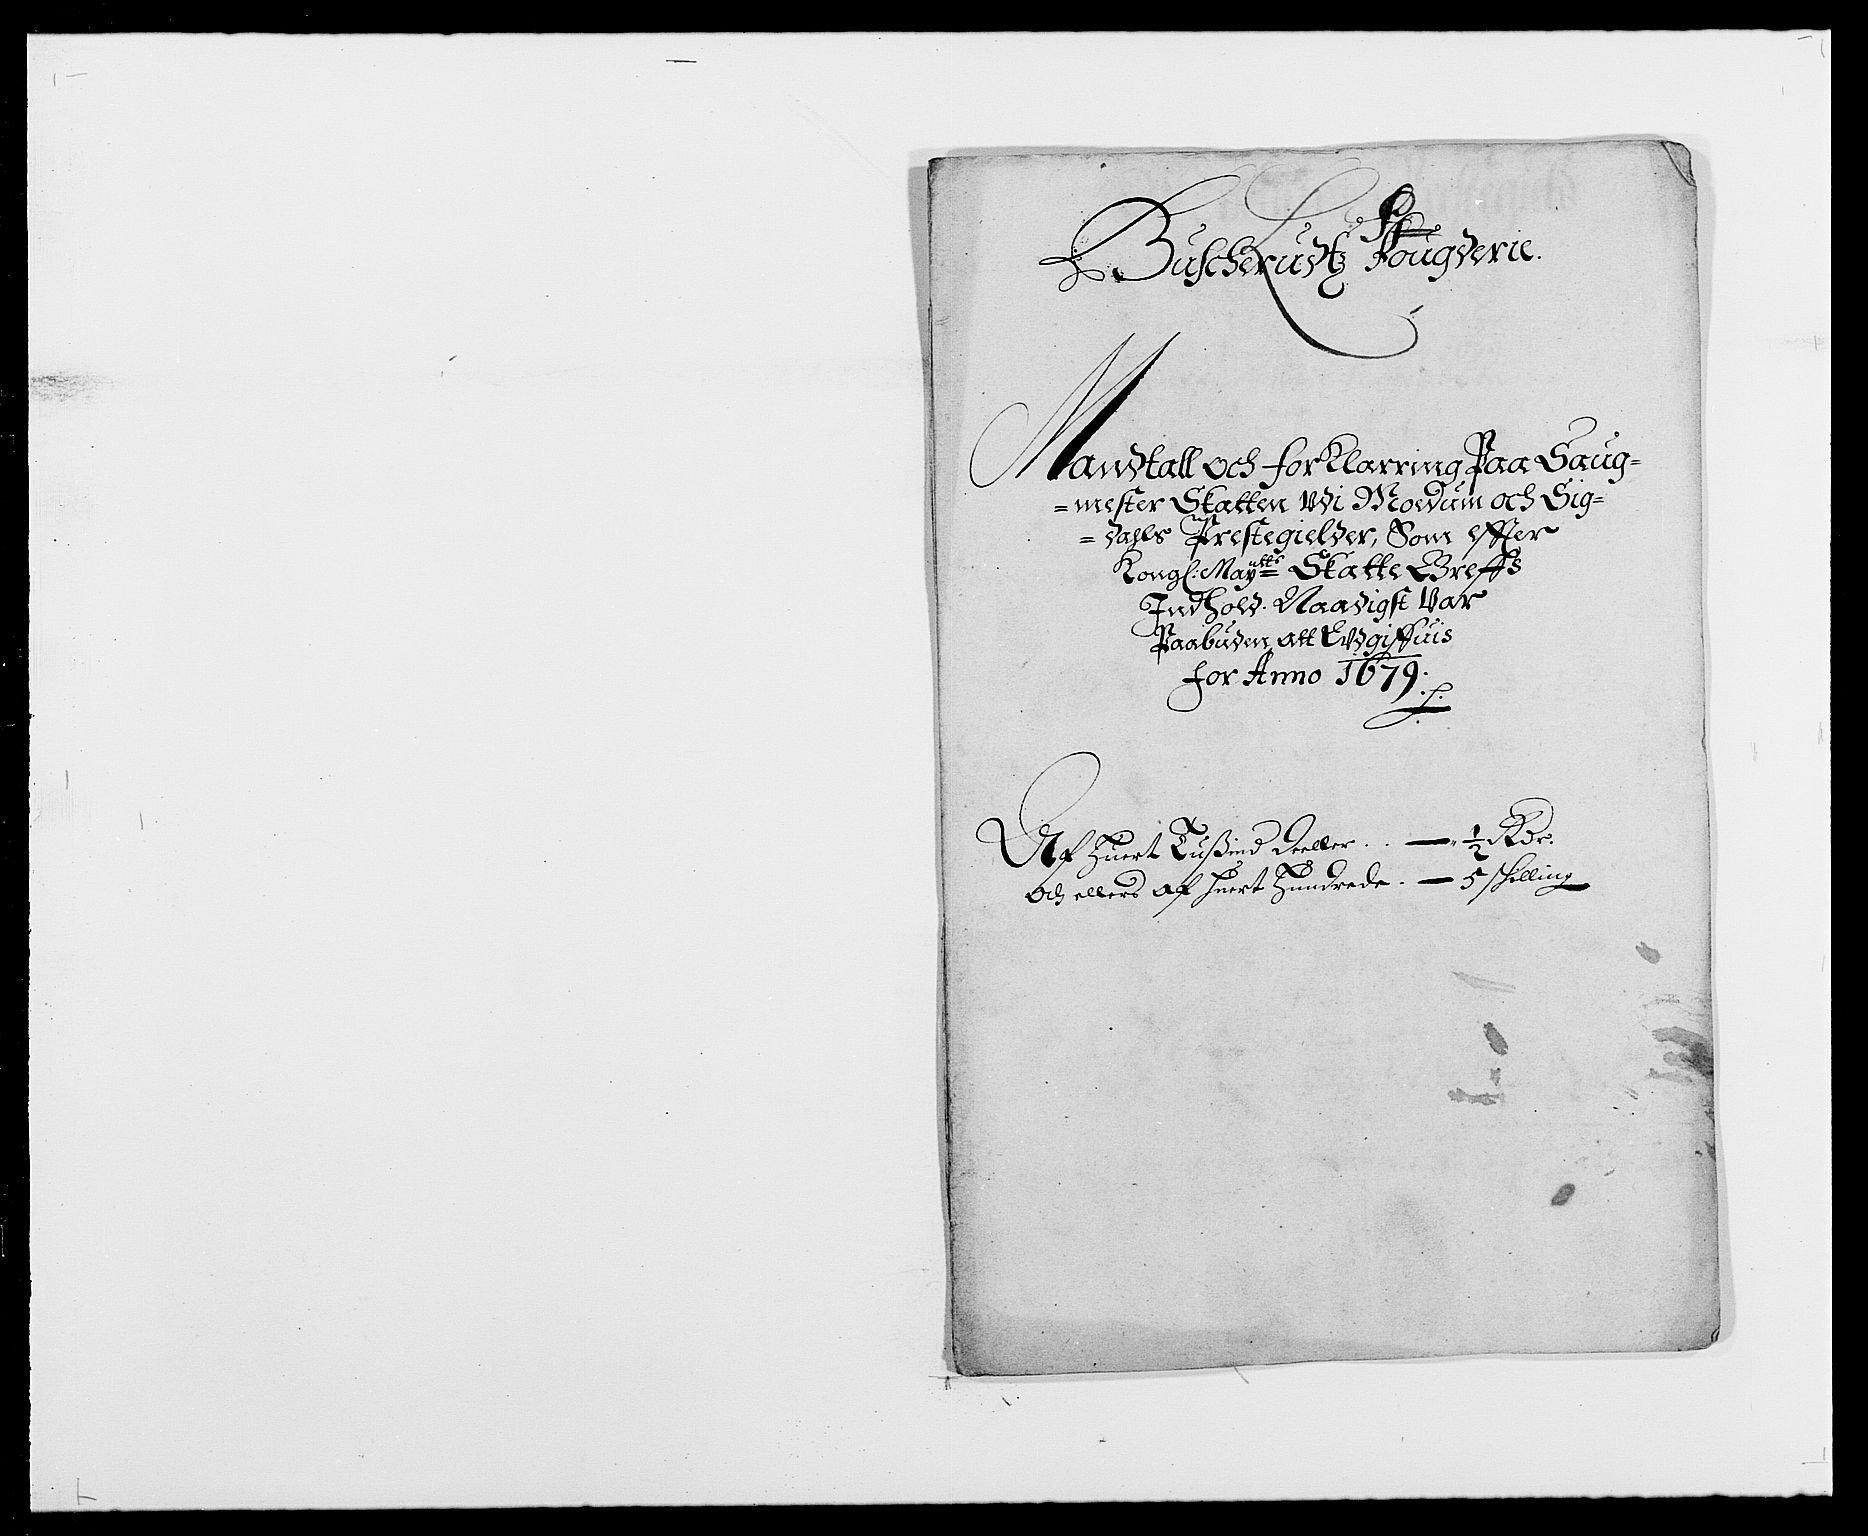 Buscherudtz Fougderie.
Mandtall och forKlarring Paa Saug=
=mester Skatten Vdi Moedum och Sig=
=dahls Prestegielder, Som effter
Kongl: Maytts Skatte Breffs
Indhold. Naadigst Var
Paabuden att Vdgiffuis
for Anno 1679.
Af huert Tußind deeller . . — 1/2 Rdr.
och ellers af huert Hundrede. — 5 skilling